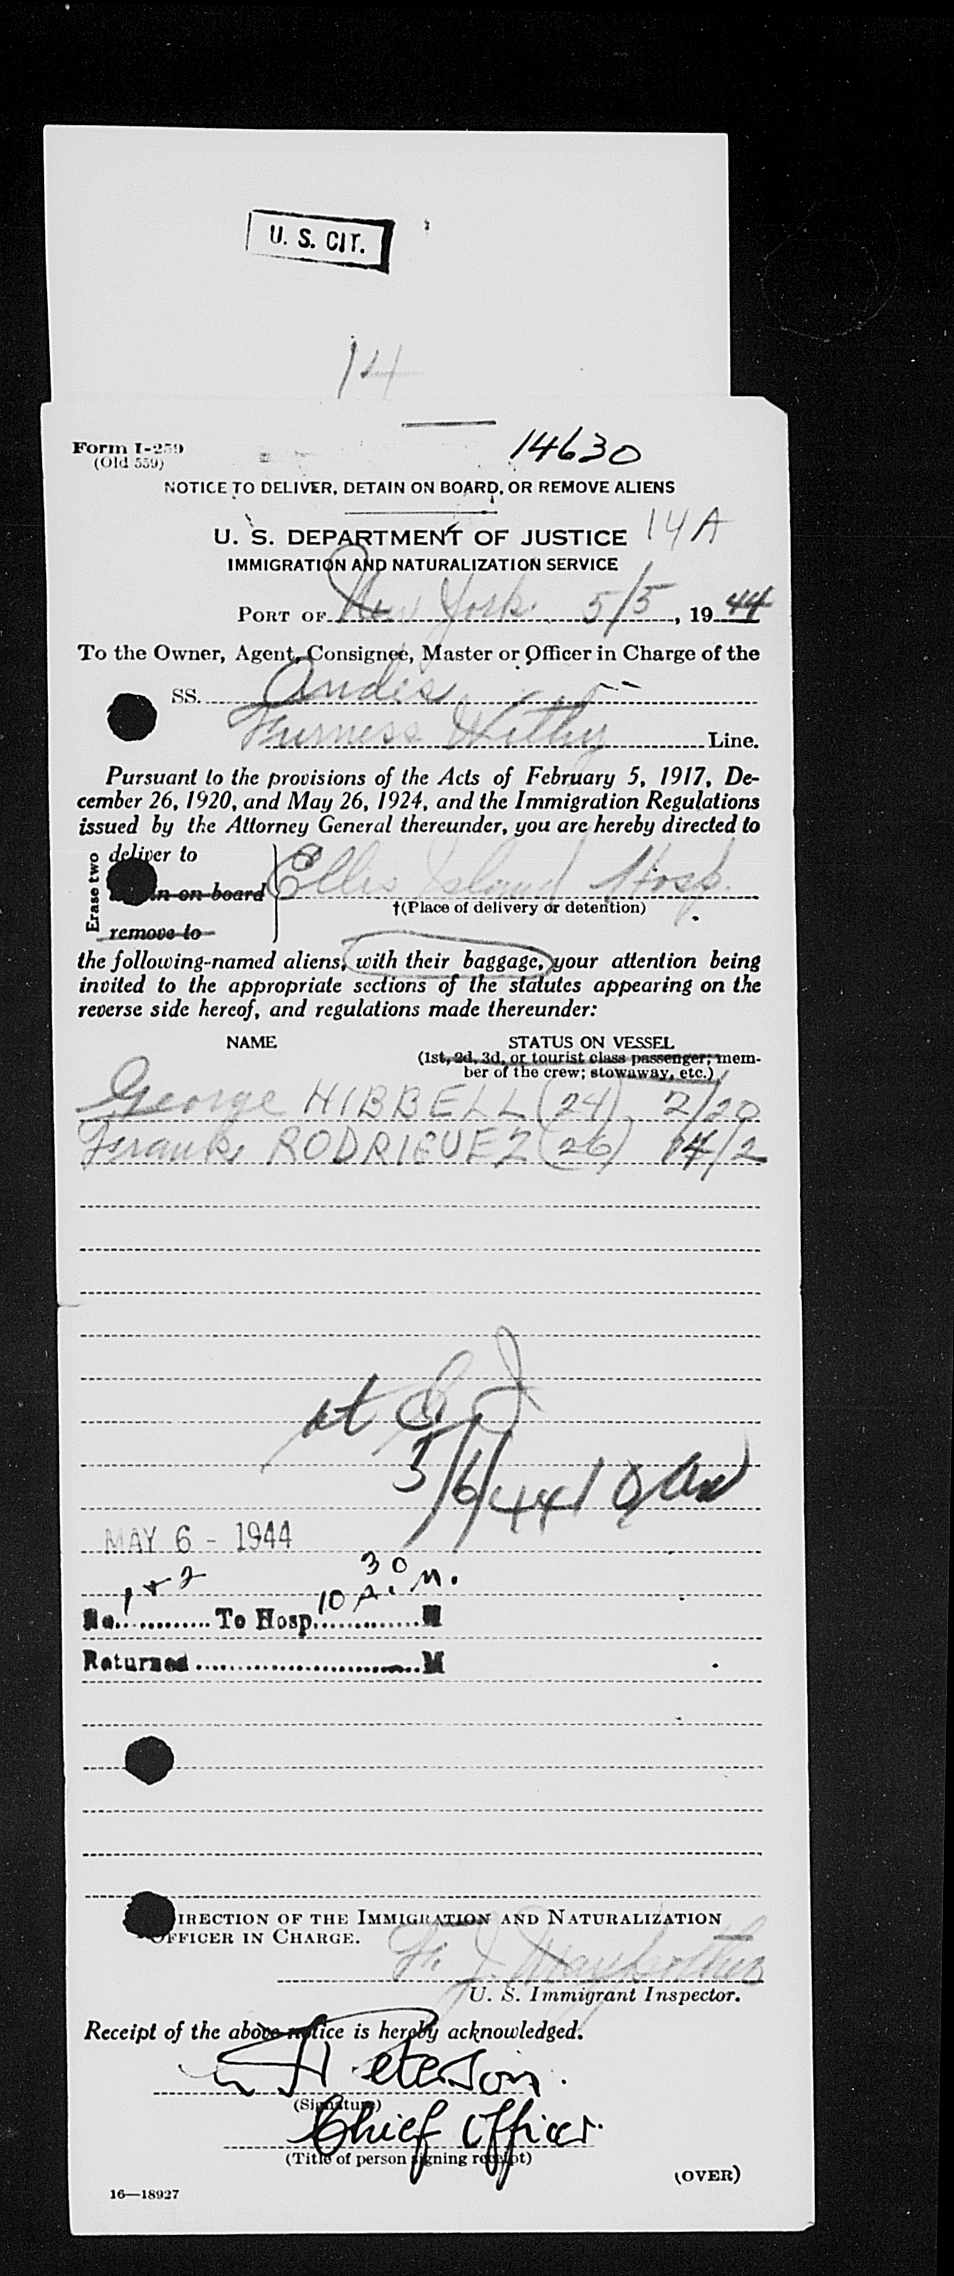 U. S. CIT.
14
Form I-259
(Old 559)
14630
NOTICE TO DELIVER, DETAIN ON BOARD, OR REMOVE ALIENS
U. S. DEPARTMENT OF JUSTICE 14A
IMMIGRATION AND NATURALIZATION SERVICE
PORT OF New York 5/5, 19 44
To the Owner, Agent, Consignee, Master or Officer in Charge of the
SS. Andes
Furness Withy Line.
Pursuant to the provisions of the Acts of February 5, 1917, De-
cember 26, 1920, and May 26, 1924, and the Immigration Regulations
issued by the Attorney General thereunder, you are hereby directed to
Erase two
deliver to
on board Ellis Island Hosp.
†(Place of delivery or detention)
remove to
the following-named aliens, with their baggage, your attention being
invited to the appropriate sections of the statutes appearing on the
reverse side hereof, and regulations made thereunder:
NAME STATUS ON VESSEL
(1st, 2d, 3d, or tourist class passenger; mem-
ber of the crew; stowaway, etc.)
George HIBBELL (24) 2/20
Frank RODRIGUEZ (26) 14/2
at E I
5/6/44 10 AM
MAY 6 - 1944
1 + 2 10 30 A. M.
No. To Hosp. M
Returned M
DIRECTION OF THE IMMIGRATION AND NATURALIZATION
OFFICER IN CHARGE.
U. S. Immigrant Inspector.
Receipt of the above notice is hereby acknowledged.
Peterson.
(Signature)
Chief Officer.
(Title of person signing receipt)
(OVER)
16—18927